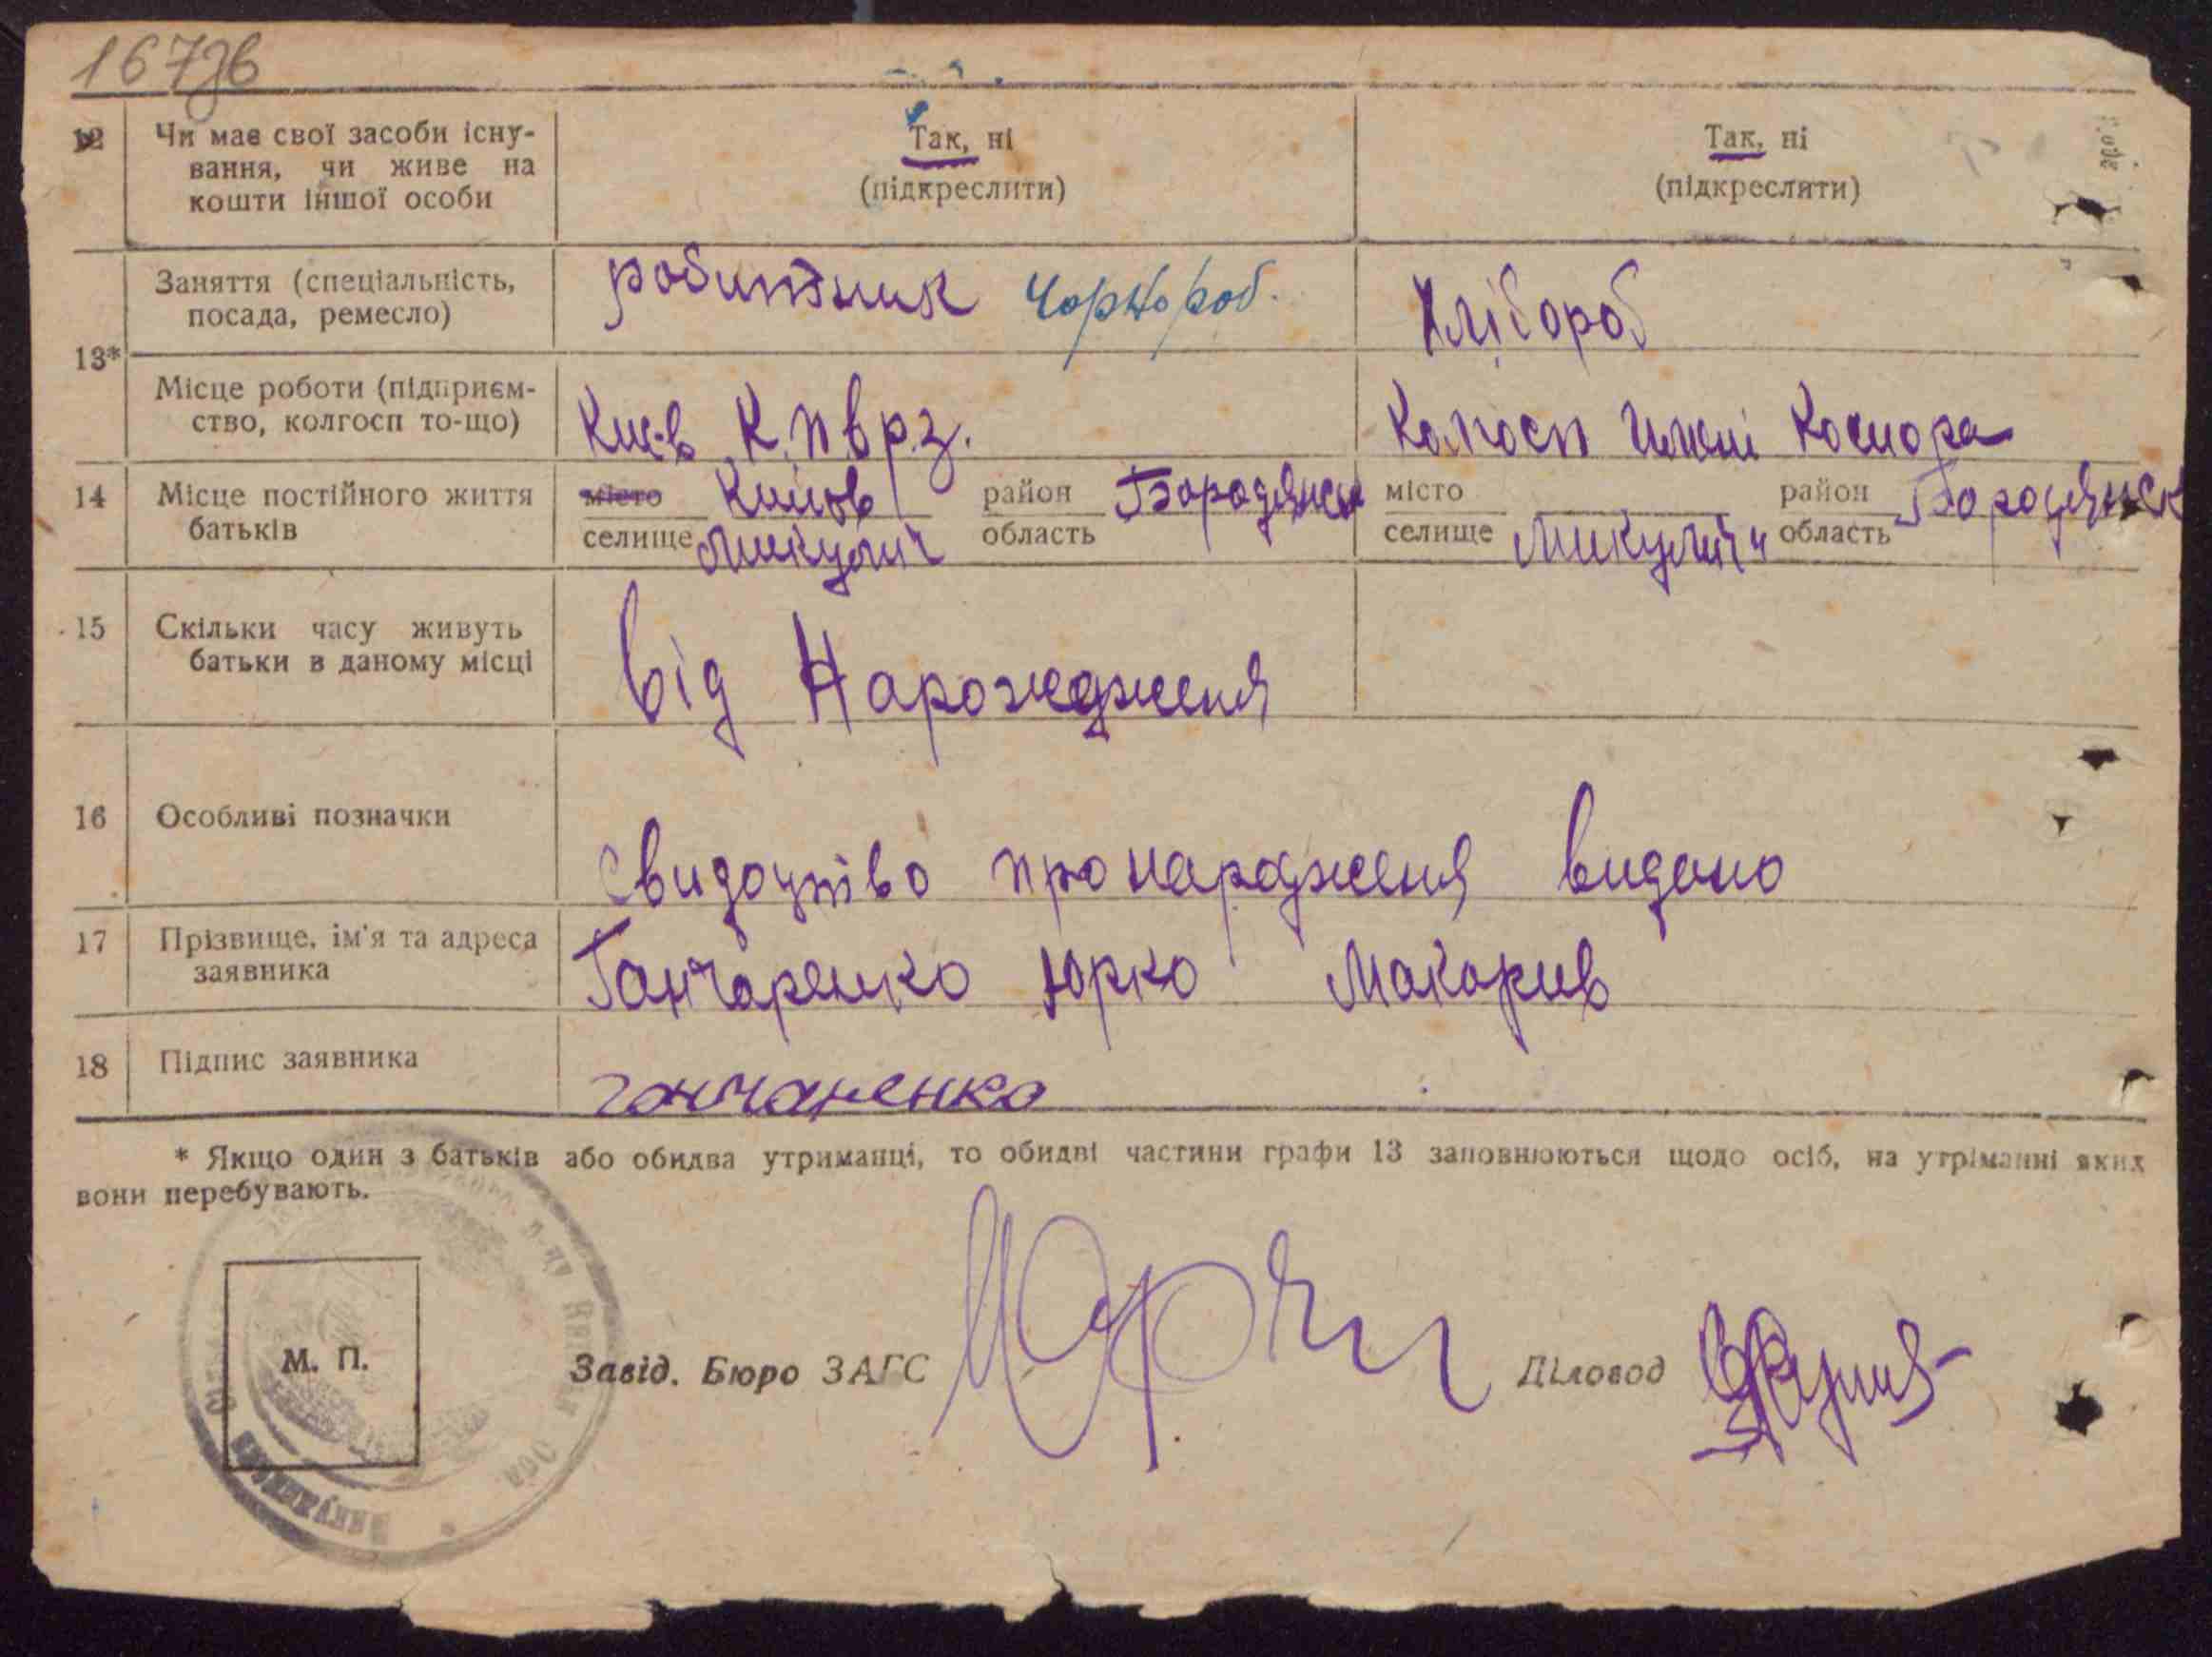 167зв
12 Чи має свої засоби існу- Так, ні Так, ні
вання, чи живе на (підкреслити) (підкреслити)
кошти іншої особи
Заняття (спеціальність, робитник Чорнороб. Хлібороб
посада, ремесло)
13*
Місце роботи (підприєм- Киів К.П.В.Р.З. Колгосп Імені Косиора
ство, колгосп то-що)
14 Місце постійного життя місто район Бородянськ місто район Бородянск
батьків селище Микулич область селище Микулич область
15 Скільки часу живуть від Нарождженя
батьки в даному місці
16 Особливі позначки
Свидоцтво про нарождженя видано
17 Прізвище, ім'я та адреса Гончаренко Юрко Макарив
заявника
18 Підпис заявника гончаренко
* Якщо один з батьків або обидва утриманці, то обидві частини графи 13 заповнюються щодо осіб, на утріманні яких
вони перебувають.
М. П.
Завід. Бюро ЗАГС Діловод